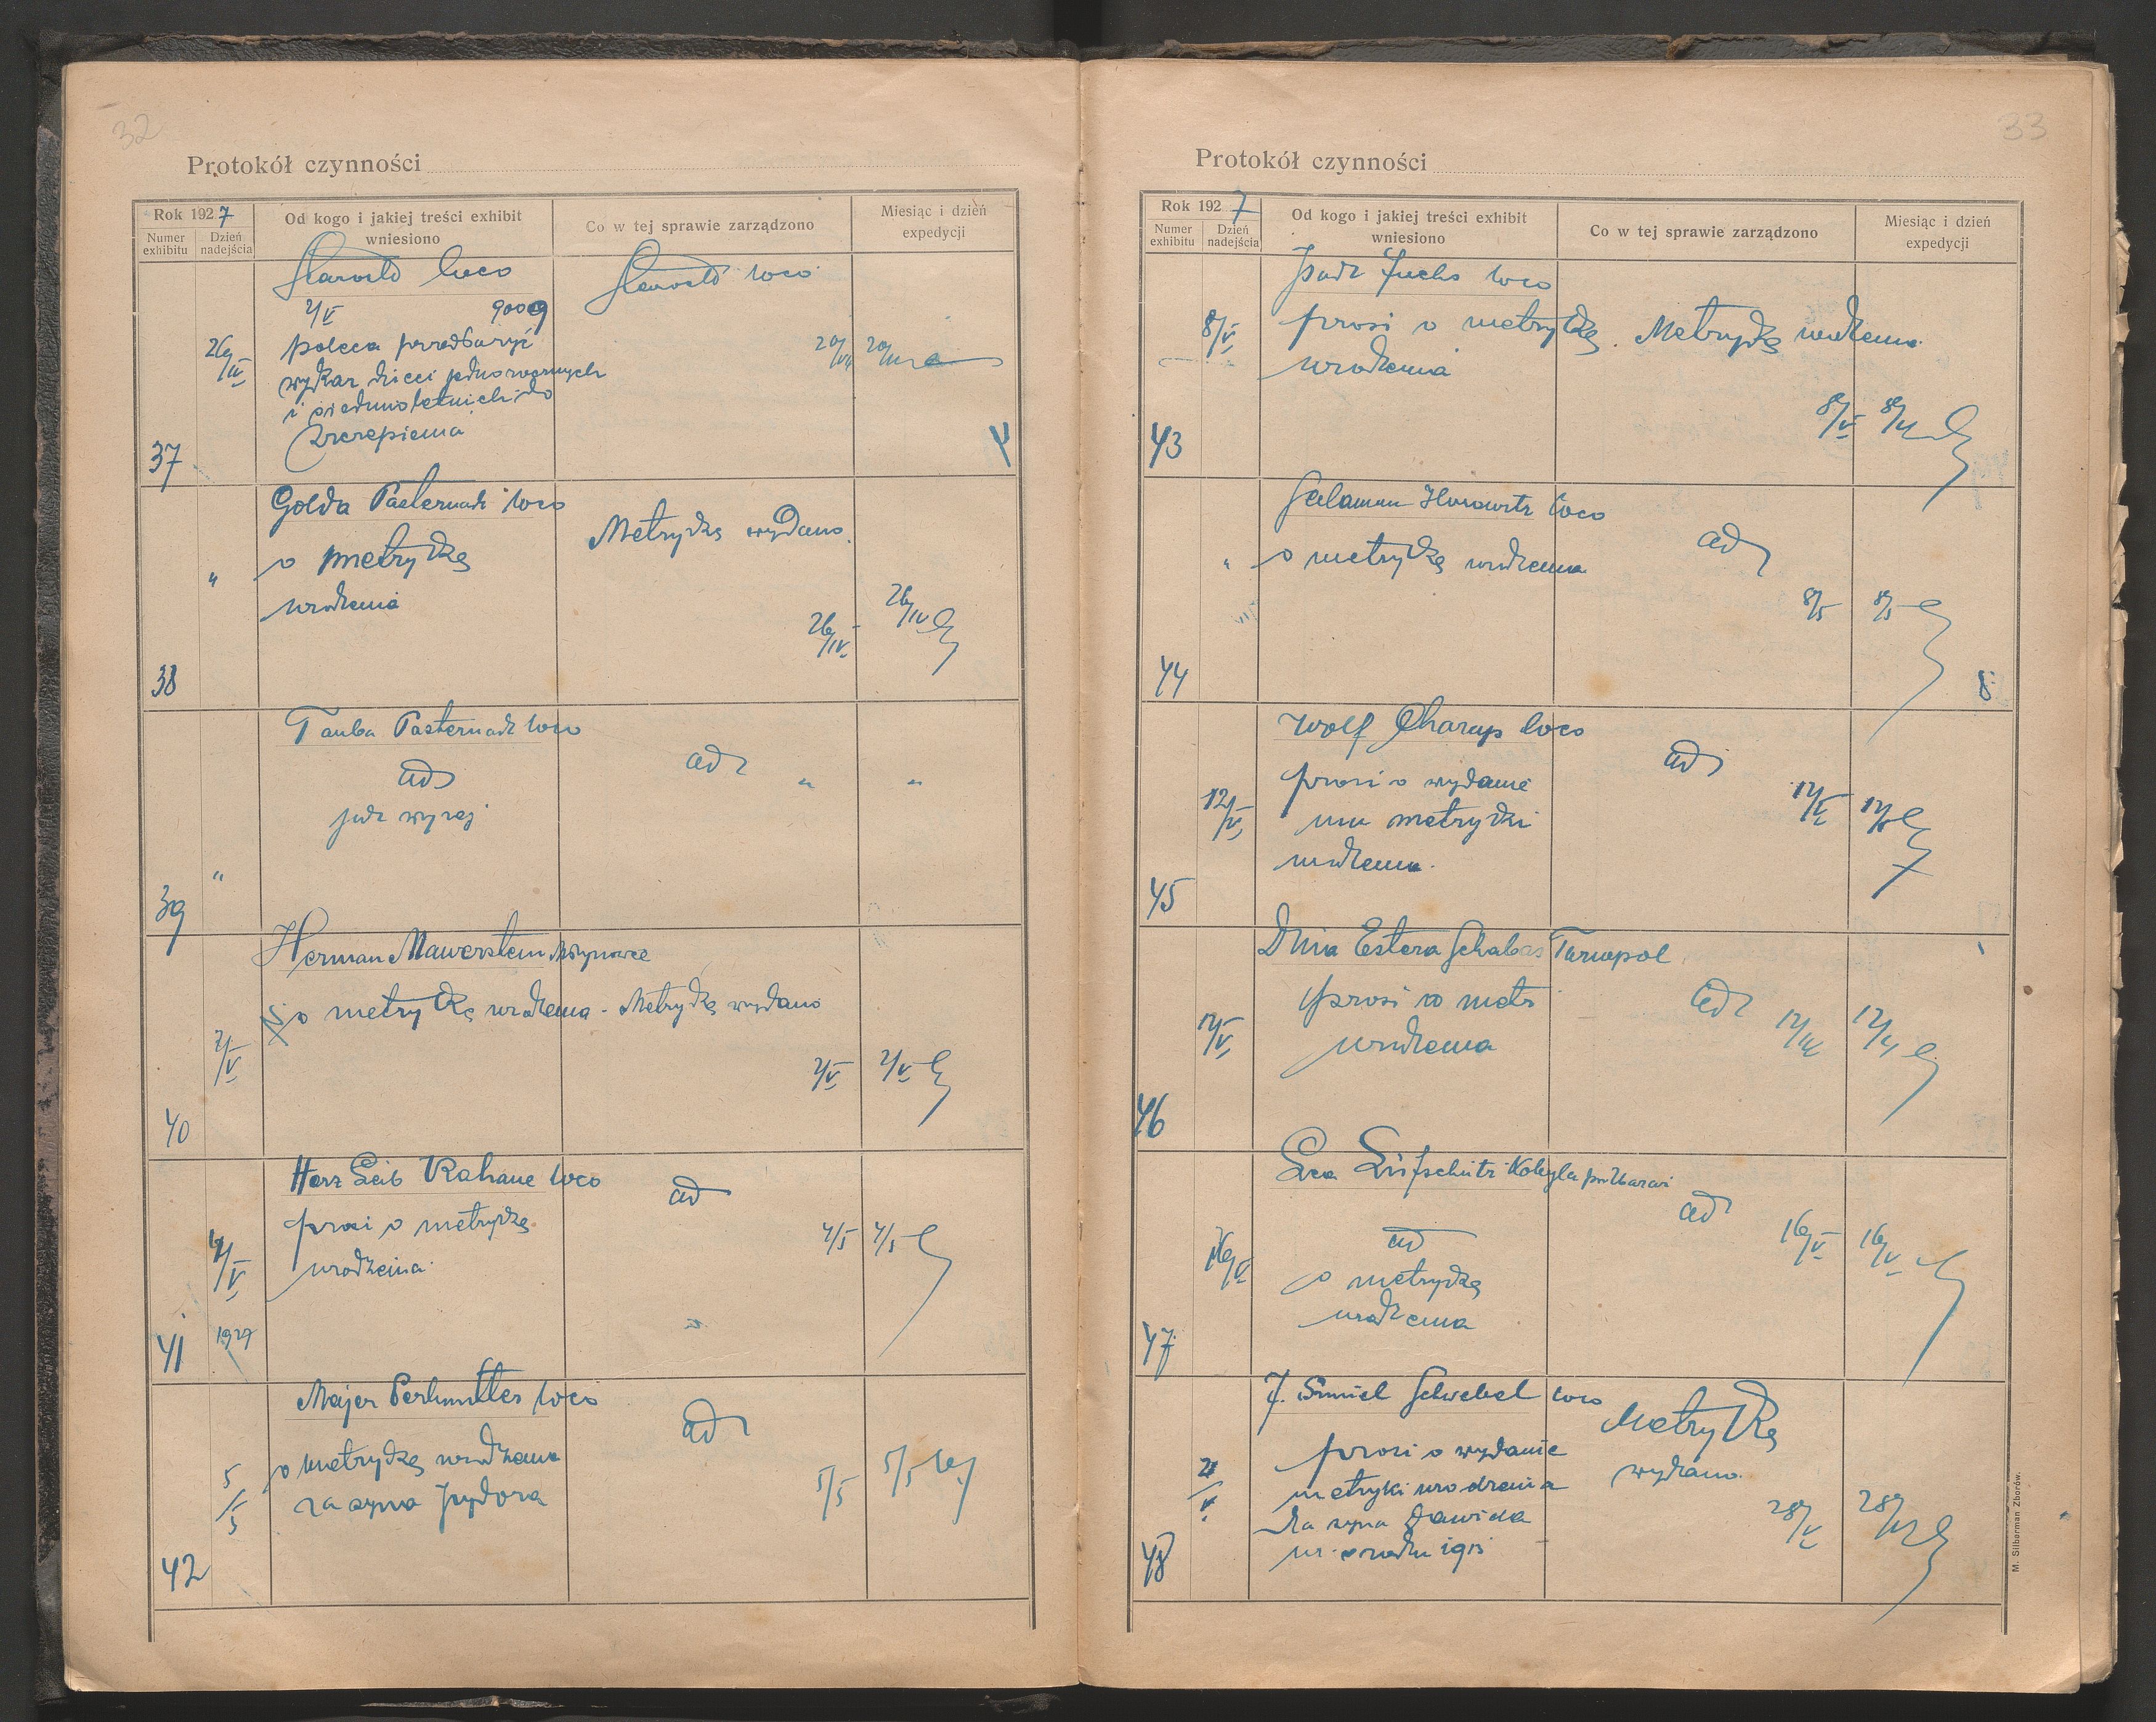 32
Protokół czynności
Rok 1927
Numer exhibitu
Dzień nadejścia
Od kogo i jakiej treści exhibit wniesiono
Co w tej sprawie zarządzono
Miesiąc i dzień expedycji
37
26/IV
Starostwo loco
2/V 9009
poleca przedłożyć
wykaz dzieci jednorocznych
i siedmioletnich do
szczepienia
Starostwo loco
38
"
Golda Pasternak loco
o metrykę
urodzenia
Metrykę wydano.
26/IV
26/IV
39
"
Tauba Pasternak loco
ad
jak wyżej
ad
"
"
40
2/V
Herman Mawerstein
o metrykę urodzenia - Metrykę wydano
2/V
2/V
41
4/V
1927
Herz Leib Kahane loco
prosi o metrykę
urodzenia
ad
4/5
4/5
42
5/5
Majer Perlmutter loco
o metrykę urodzenia
za syna Izydora
ad
5/5
5/5
33
Protokół czynności
Rok 1927
Numer exhibitu
Dzień nadejścia
Od kogo i jakiej treści exhibit wniesiono
Co w tej sprawie zarządzono
Miesiąc i dzień expedycji
43
8/V
Fuchs loco
prosi o metrykę
urodzenia
Metrykę urodzenia
8/V
8/V
44
"
Salamon Horowitz loco
o metrykę urodzenia
ad
8/5
8/5
8
45
12/V
Wolf Charap loco
prosi o wydanie
mu metryki
urodzenia.
ad
12/V
12/V
46
12/V
Estera Schabas Tarnopol
prosi o metr
urodzenia
ad
12/V
47
16/V
Lea Lifschütz Kobyla
ad
o metrykę
urodzenia
ad
16/V
16/V
48
J. Samuel Schwebel loco
prosi o wydanie
metryki urodzenia
dla syna Dawida
ur. w roku
Metrykę
wydano.
28/V
M. Silberman Zborów.